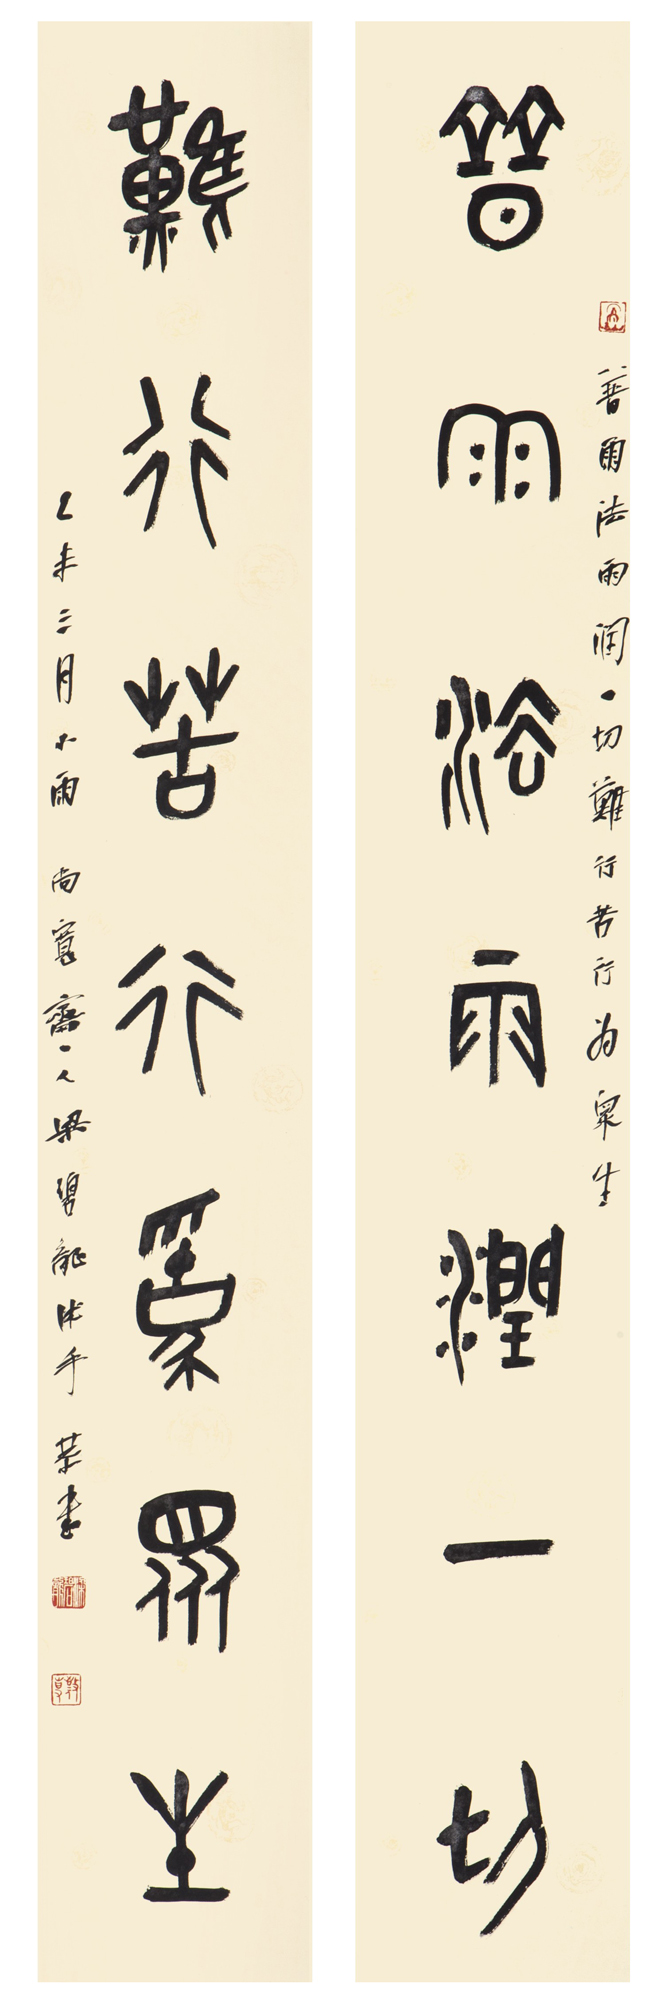 普雨法雨潤一切難行苦行為眾生
普雨法雨潤一切
難行苦行為眾生
乙未三月小雨 尚寬齋一人梁碧龍沐手 恭書